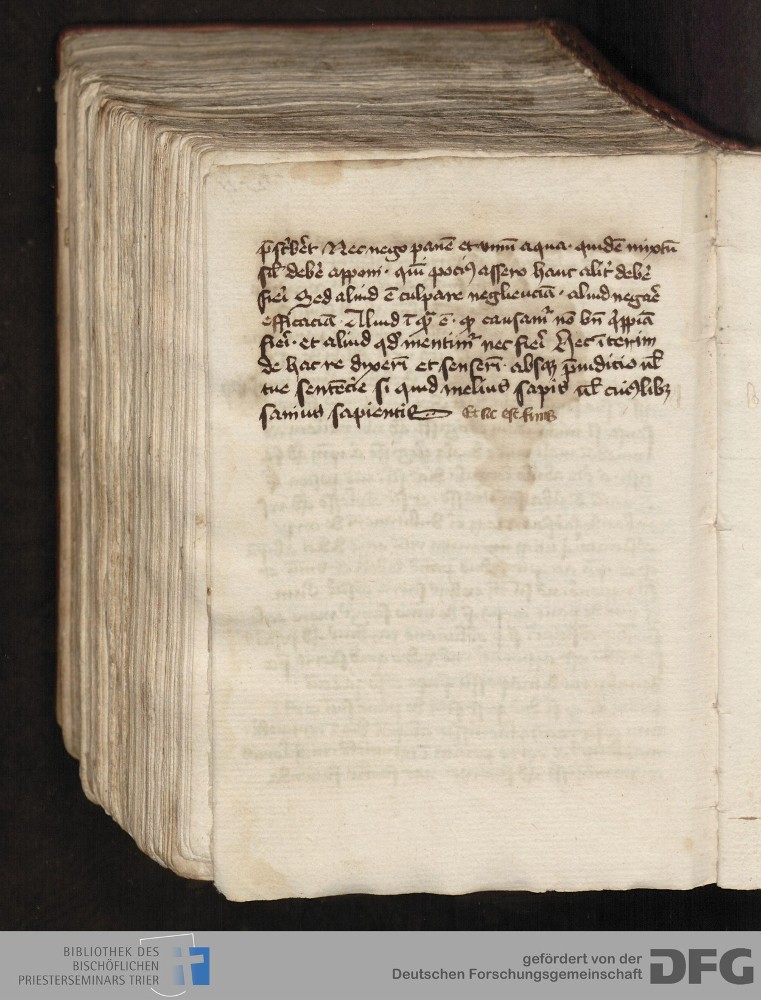 p̄scͥbēt Nec nego panē et vinū aqua quidē mixtū
sil' debē apponi · quī pociꝰ assero hanc alit' debē
fieī Sed aliud ē culpare negliēciā · aliud negaē
efficaciā · Aliud īqͣ ē · qͥ causamͬ nō bn̄ qͥppiā
fieī · et aliud qd' mentimͬ nec fieī Hec īterim
de hac re dixerī et senserī · absqꝫ p̄iudicio ul'
tue sentēcie si quid melius sapis ul' cuiꝰlibꝫ
sanius sapientis Et sic est finis
BIBLIOTHEK DES
BISCHÖFLICHEN
PRIESTERSEMINARS TRIER
gefördert von der
Deutschen Forschungsgemeinschaft
DFG